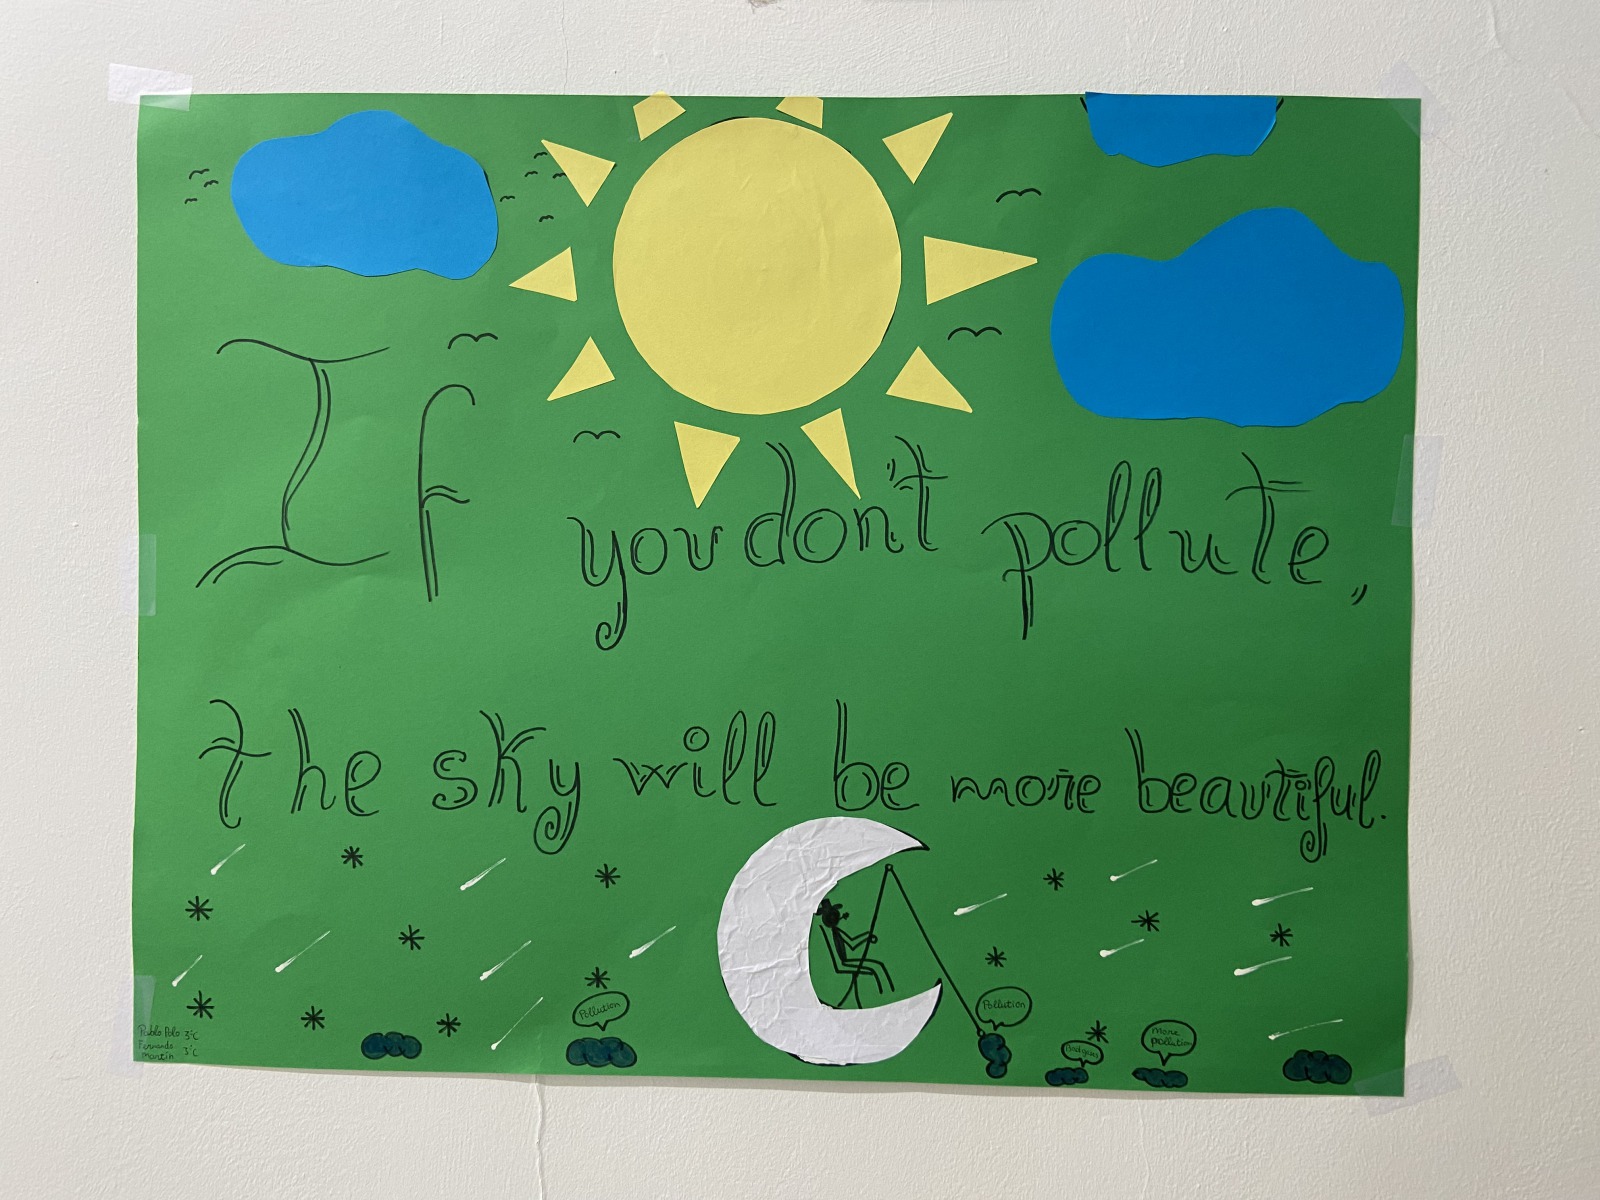 If you don't pollute,
the sky will be more beautiful.
Pollution
Pollution
Bad gases
More
pollution
Pablo Polo 3ºC
Fernando
Martín 3ºC